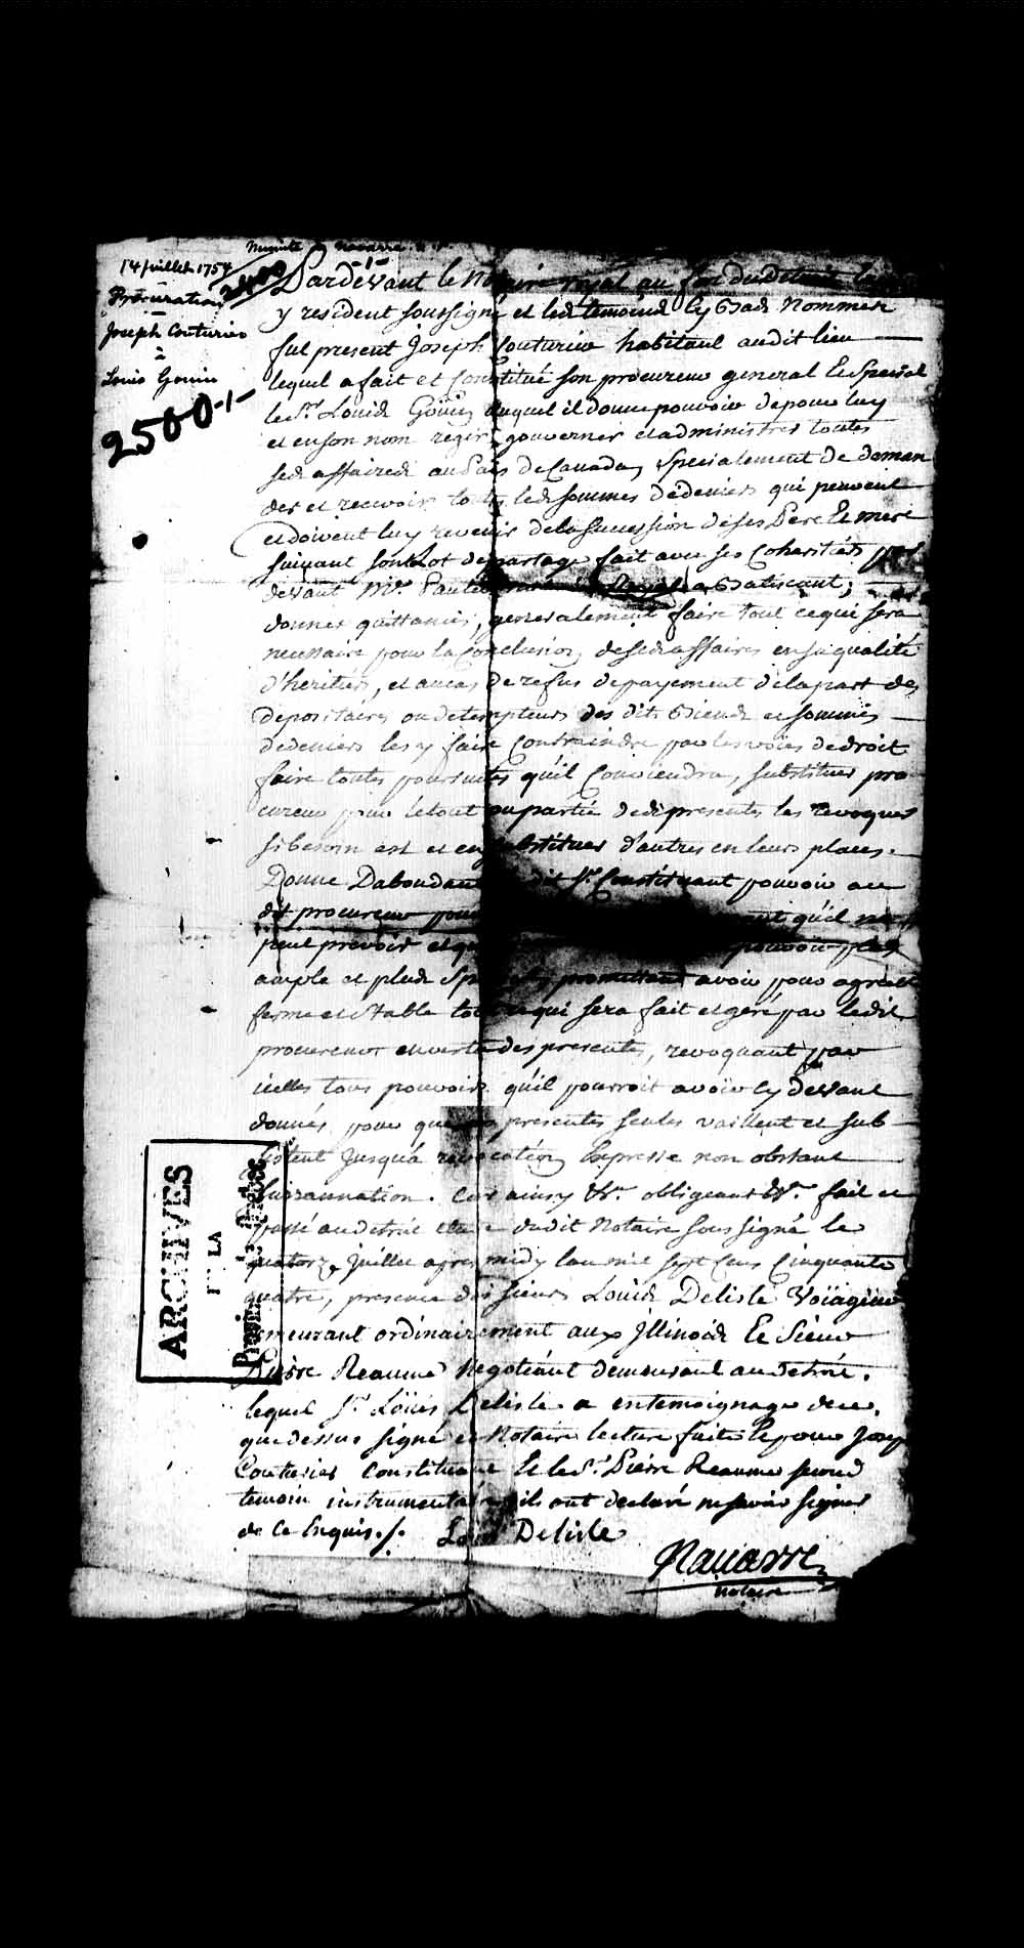 Minute Navarre
14 juillet 1754
Procuration
Joseph Couturier
à
Louis Gouin
2400
2500-1-
-1-
Pardevant le Notaire royal au fort du Detroit
y resident soussigné et les temoins cy bas Nommés
fut present Joseph Couturier habitant audit lieu
lequel a fait et Constitué son procureur general Et Special
le Sr. Louis Goüin auquel il donne pouvoir de pour luy
et en son nom regir gouverner et administrer toutes
ses affaires au Païs de Canada, specialement de deman
der et recevoir toutes les sommes de deniers qui peuvent
et doivent luy revenir de la succession de ses Pere Et mere
suivant son Lot de partage fait avec ses Coheritiers par
devant Me. a Batiscant,
donner quittances, generalement faire tout ce qui sera
necessaire pour la Conclusion de ses affaires en sa qualité
d'heritier, et au cas de refus de payement de la part des
depositaires ou detempteurs des dits Biens et sommes
de deniers les y faire Contraindre par les voies de droit
faire toutes poursuites qu'il Conviendra, substituer pro
cureur pour le tout ou partie des presentes les revoquer
si besoin est et en substituer d'autres en leurs places.
Donne Dabondant Sr. Constituant pouvoir au
dit procureur pour qu'il ne
peut prevoir et pouvoir plus
ample et plus special promettant avoir pour agreable
ferme et stable tout ce qui sera fait et geré par ledit
procureur en vertu des presentes, revoquant par
icelles tous pouvoirs qu'il pourroit avoir cy devant
donnés pour que presentes seules vaillent et sub
sistent jusqu'a revocation Expresse non obstant
surannation. Car ainsy &c. obligeant &c. fait et
passé au detroit etude dudit Notaire soussigné le
quatorze Juillet apres midy l'an mil sept Cens Cinquante
quatre, presence des sieurs Louis Delisle Voïageur
demeurant ordinairement aux Illinois Et Sieur
Pierre Reaume Negotiant demeurant au detroit.
lequel Sr. Loüis Delisle a en temoignage de ce
que dessus signé et Notaire lecture faite Et pour Joseph
Couturier Constituant Et le Sr. Pierre Reaume second
temoin instrumentaire ils ont declaré ne savoir signer
de Ce Enquis ./.
Louis Delisle
Navarre
Notaire
ARCHIVES
DE LA
Province de Québec